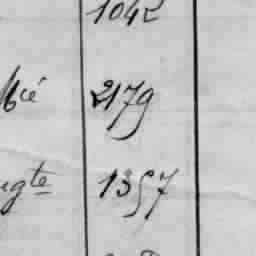 1042
Mcé 2179
ugte 1357